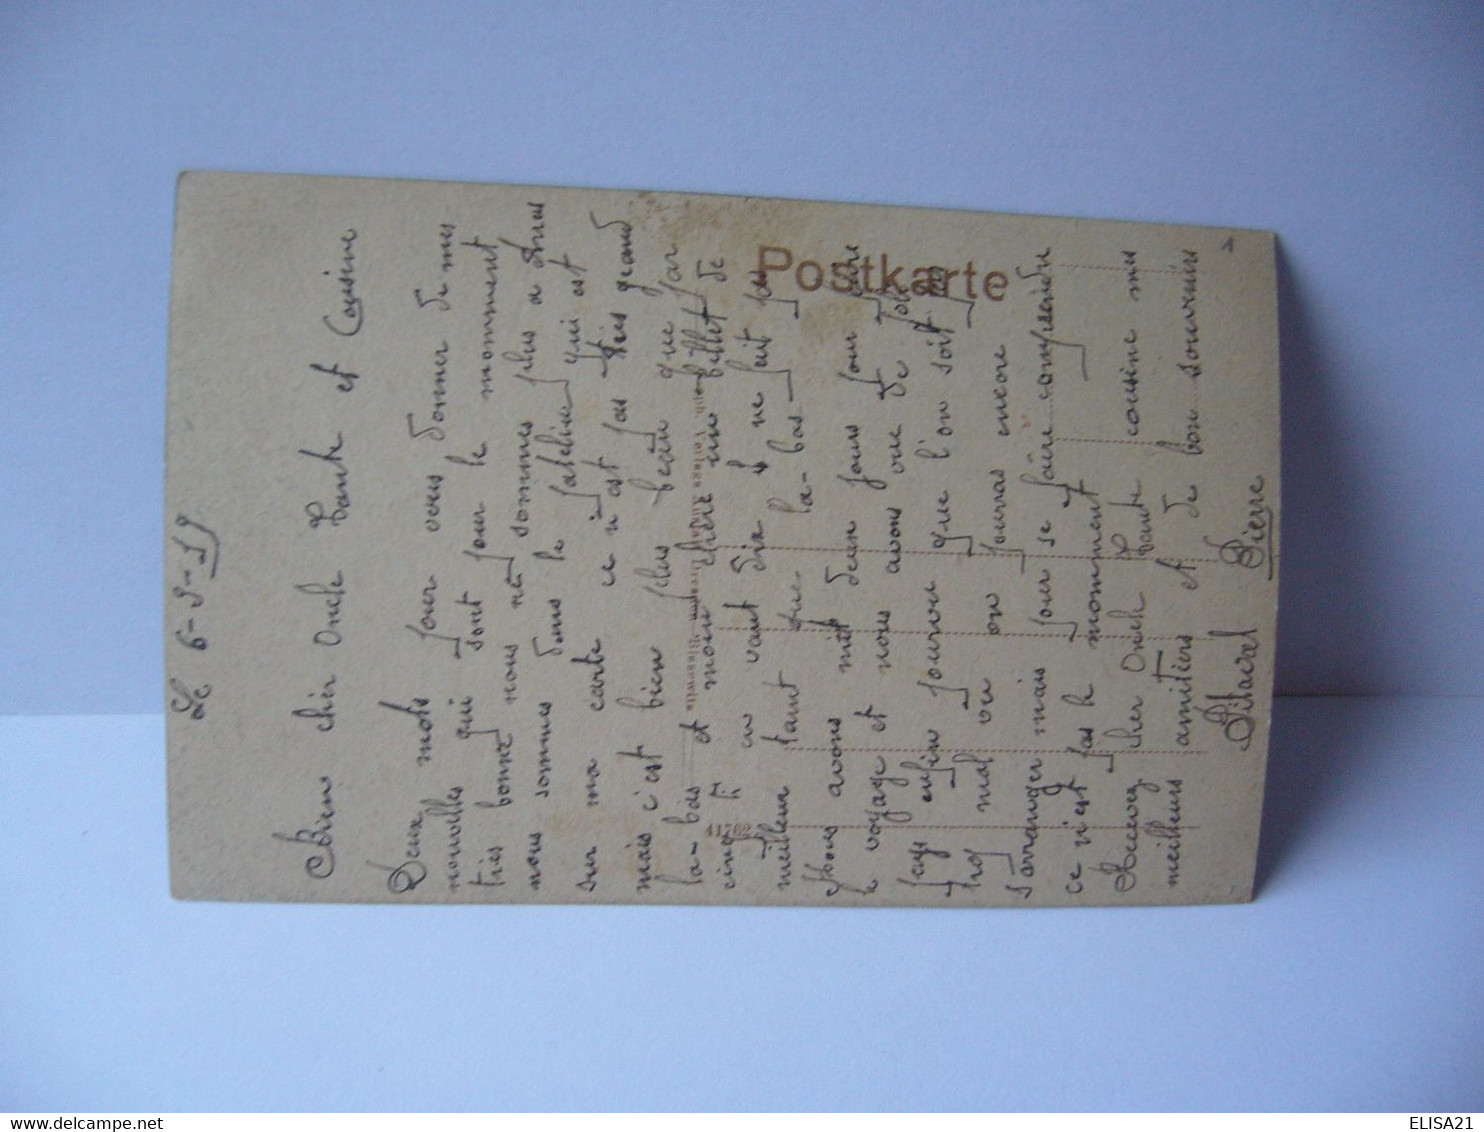 Le 6-9-19
Bien cher Oncle Tante et Cousine
Deux mots pour vous donner de mes
nouvelles qui sont pour le momment
très bonne nous ne sommes plus a
nous sommes dans le patelin qui est
sur ma carte ce n'est pas très grand
mais c'est bien plus beau que par
la-bas et moin chère un billet de
cinq F en vaut dix ne fait pas
meilleur tant que la-bas
Nous avons mit deux jours pour faire
le voyage et nous avons vue de jolie
pays enfin pourvu que l'on soit pas
trop mal ou on pourras encore
s'arranger mais pour se faire comprendre
ce n'est pas le momment
Recevez cher Oncle Tante cousine mes
meilleurs amitiers et de bon souvenirs
Pierre
Postkarte
41762
ELISA21